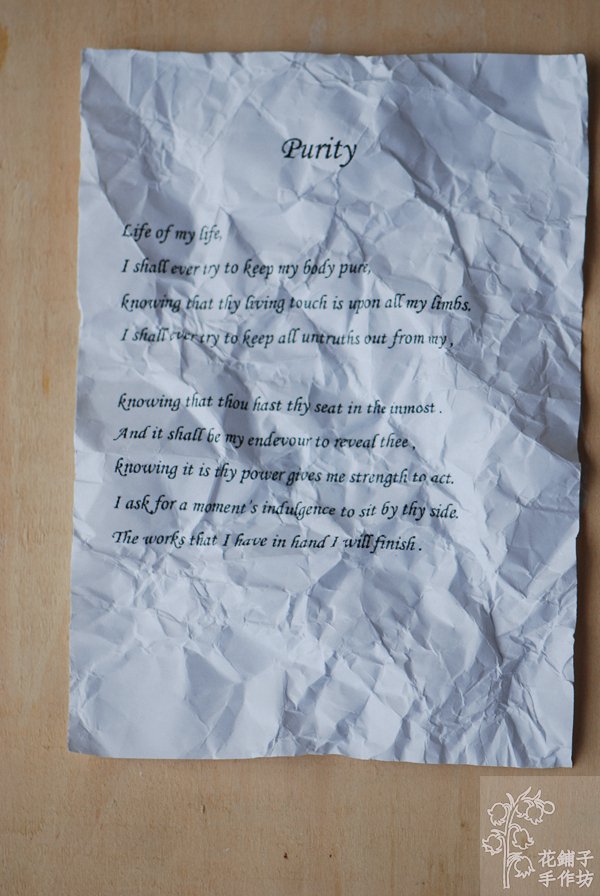 Purity
Life of my life,
I shall ever try to keep my body pure,
knowing that thy living touch is upon all my limbs.
I shall ever try to keep all untruths out from my ,
knowing that thou hast thy seat in the inmost .
And it shall be my endevour to reveal thee ,
knowing it is thy power gives me strength to act.
I ask for a moment's indulgence to sit by thy side.
The works that I have in hand I will finish .
花鋪子
手作坊